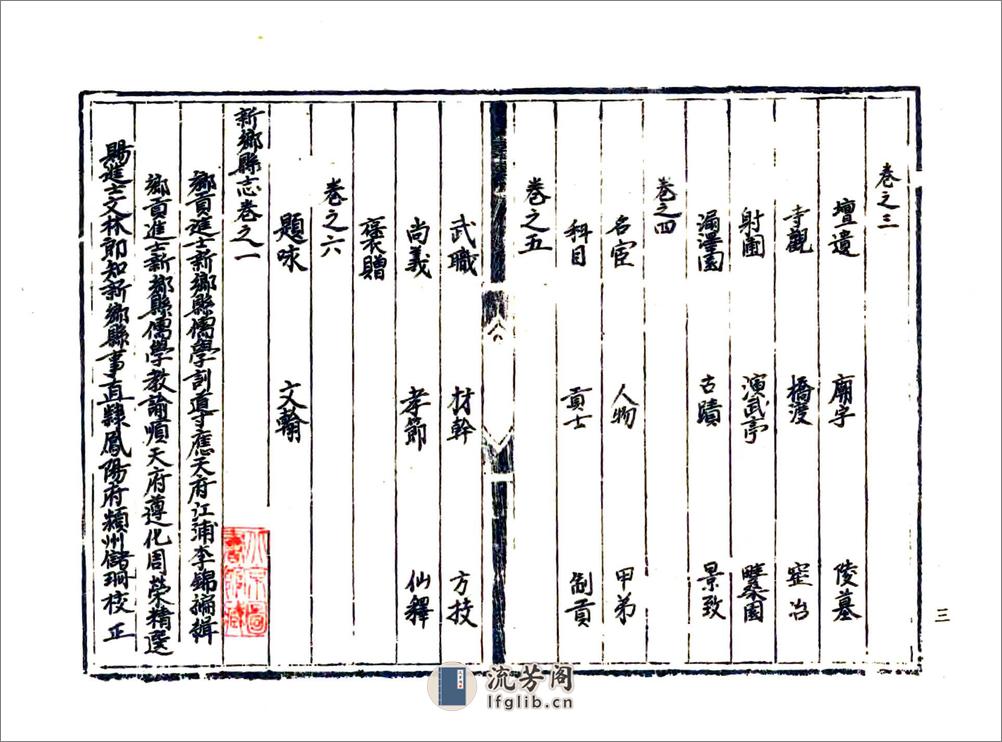 卷之三
壇遺 廟宇 陵墓
寺觀 橋渡 窑冶
射圃 演武亭
漏澤園 古蹟 景致
卷之四
名宦 人物 甲第
科目 貢士 制貢
卷之五
武職 材幹 方技
尚義 孝節 仙釋
褒贈
卷之六
題咏 文翰
新鄉縣志卷之一
鄉貢進士新鄉縣儒學訓導應天府江浦李錦編緝
鄉貢進士新鄉縣儒學教諭順天府遵化周榮精選
賜進士文林郎知新鄉縣事直隸鳳陽府潁州儲珊校正
三
流芳阁
lfglib.cn